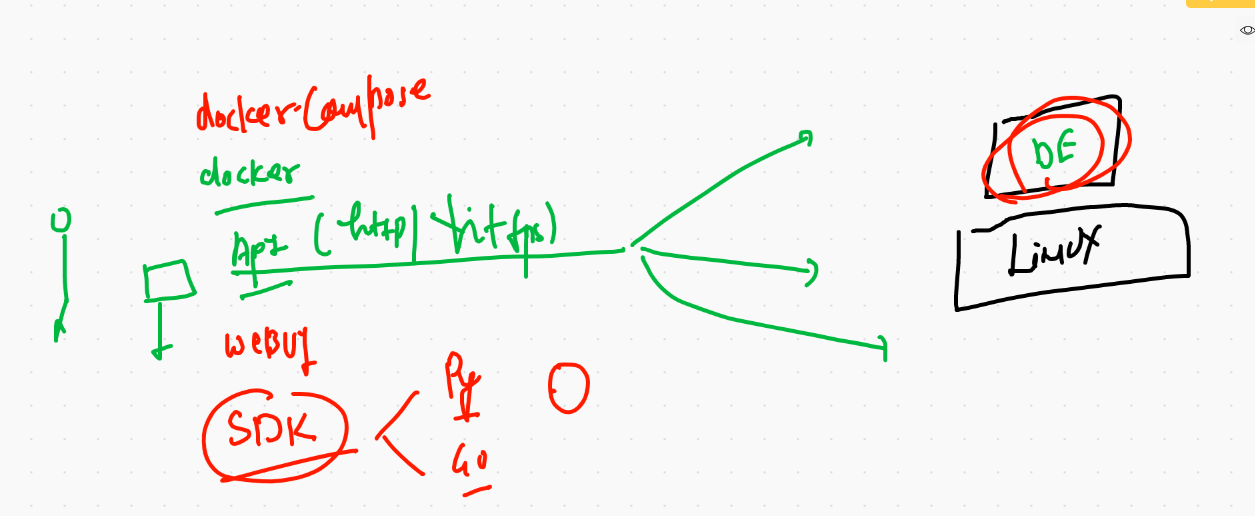 docker-Compose
docker
API (http|https)
WEBUI
SDK
Py
Go
DE
LinUX